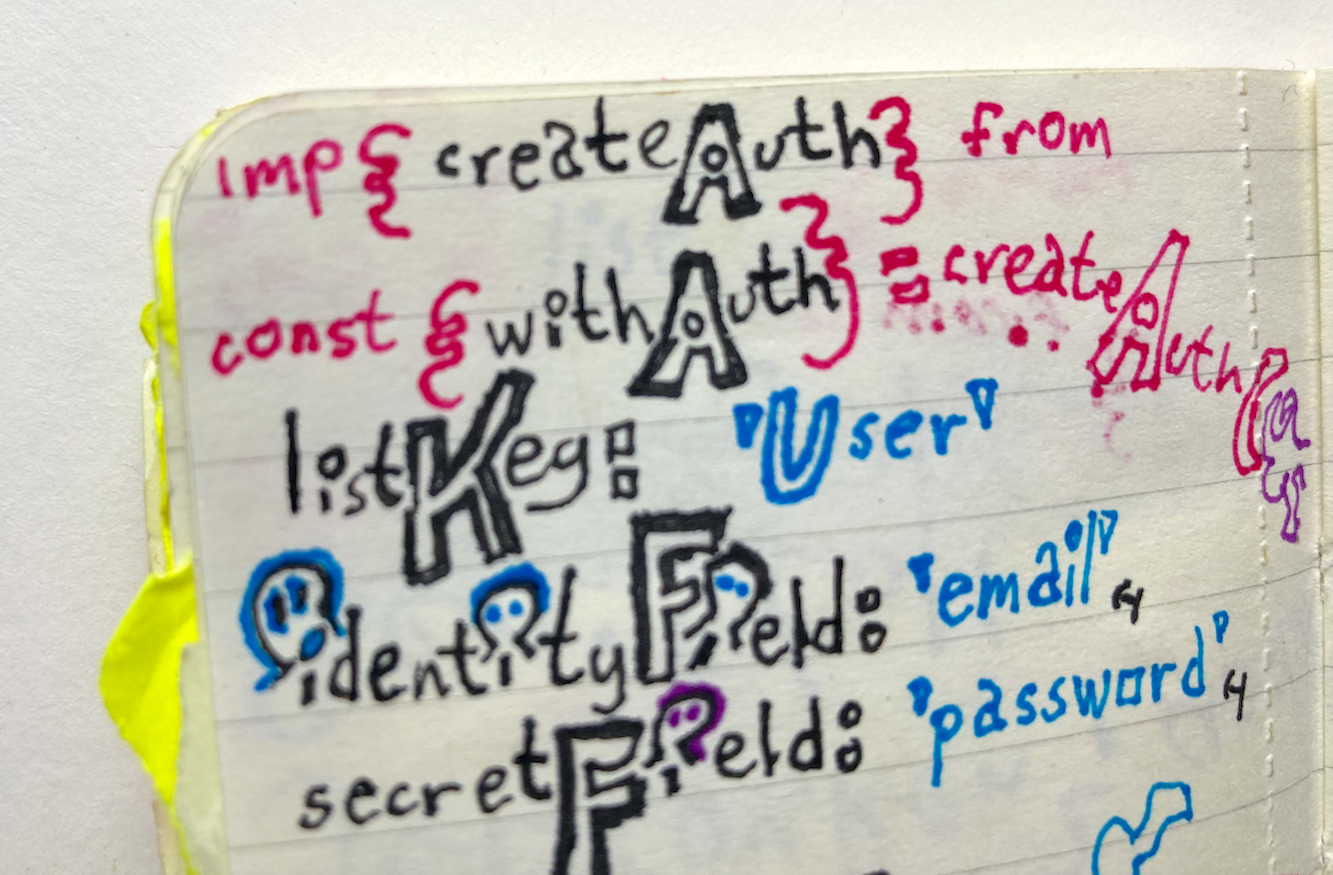 imp{ createAuth} from
const {withAuth} = createAuth({
listKey: 'User'
identityField: 'email',
secretField: 'password',